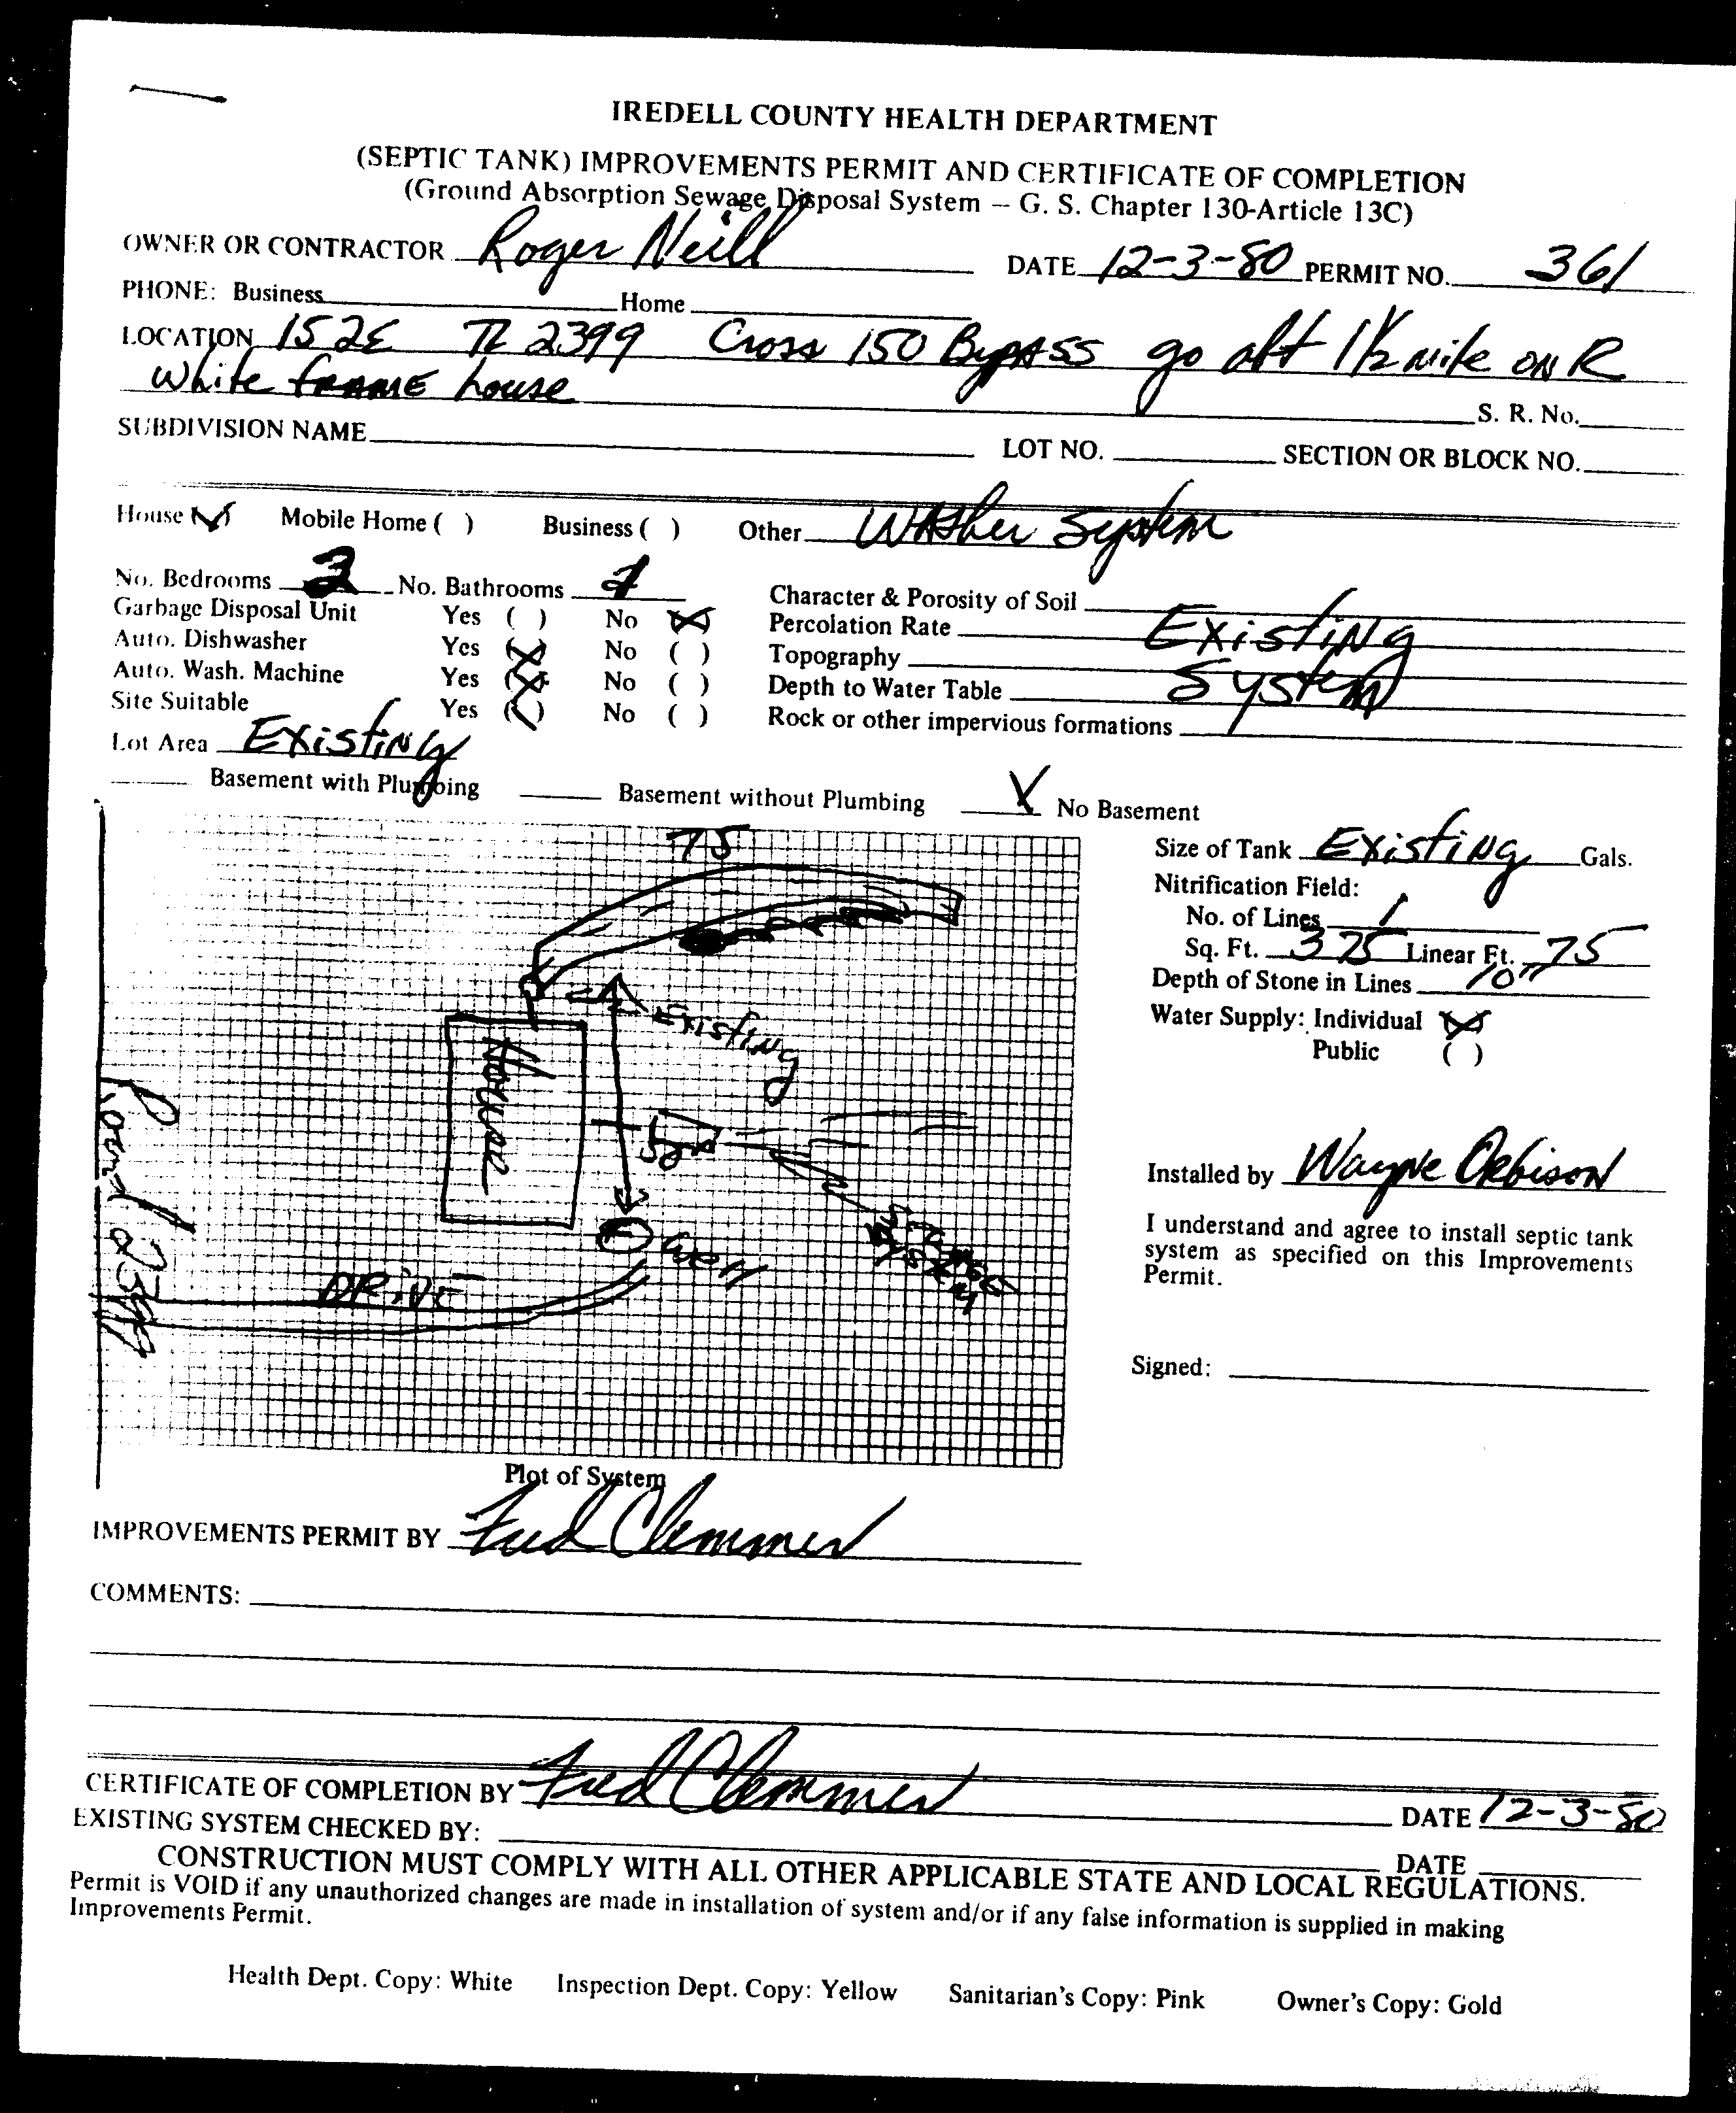 IREDELL COUNTY HEALTH DEPARTMENT
(SEPTIC TANK) IMPROVEMENTS PERMIT AND CERTIFICATE OF COMPLETION
(Ground Absorption Sewage Disposal System – G. S. Chapter 130-Article 13C)
OWNER OR CONTRACTOR Roger Neill DATE 12-3-80 PERMIT NO. 361
PHONE: Business Home
LOCATION 152E TL 2399 Cross 150 Bypass go abt 1 1/2 mile on R
White frame house S. R. No.
SUBDIVISION NAME LOT NO. SECTION OR BLOCK NO.
House (✓) Mobile Home ( ) Business ( ) Other Washer System
No. Bedrooms No. Bathrooms 1 Character & Porosity of Soil
Garbage Disposal Unit Yes ( ) No (X) Percolation Rate Existing
Auto. Dishwasher Yes (X) No ( ) Topography
Auto. Wash. Machine Yes (X) No ( ) Depth to Water Table System
Site Suitable Yes (✓) No ( ) Rock or other impervious formations
Lot Area Existing
Basement with Plumbing Basement without Plumbing X No Basement
75
Existing
House
Well
DRIVE
Road 2399
Plot of System
Size of Tank Existing Gals.
Nitrification Field:
No. of Lines 1
Sq. Ft. 375 Linear Ft. 75
Depth of Stone in Lines 10"
Water Supply: Individual (X)
Public ( )
Installed by Wayne Orbison
I understand and agree to install septic tank
system as specified on this Improvements
Permit.
Signed:
IMPROVEMENTS PERMIT BY Fred Clemmer
COMMENTS:
CERTIFICATE OF COMPLETION BY Fred Clemmer DATE 12-3-80
EXISTING SYSTEM CHECKED BY: DATE
CONSTRUCTION MUST COMPLY WITH ALL OTHER APPLICABLE STATE AND LOCAL REGULATIONS.
Permit is VOID if any unauthorized changes are made in installation of system and/or if any false information is supplied in making
Improvements Permit.
Health Dept. Copy: White Inspection Dept. Copy: Yellow Sanitarian's Copy: Pink Owner's Copy: Gold